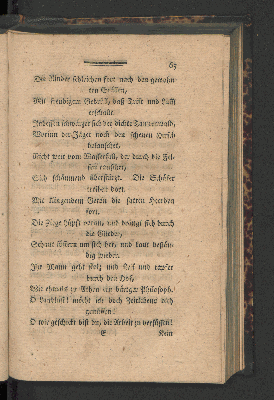 67
Die Rinder schleichen fort nach den gewohn-
ten Ställen,
Mit freudigem Gebrüll, daß Trift und Luft
erschallt.
schwärzet sich der dichte Tannenwald,
Worinn der Jäger noch den scheuen Hirsch
belauschet,
Nicht weit vom Wasserfall, der durch die Fel-
sen rauschet,
Sich schäumend überstürzt. Die Schäfer
treiben dort
Mit klingendem die satten Heerden
fort.
Die Ziege hüpft voran, und drängt sich durch
die Glieder,
Schaut lüstern um sich her, und kaut bestän-
dig wieder.
Ihr Mann geht stolz, und
durch den Hof,
Wie ehmals zu Athen ein bärtger Philosoph.
O Landlust! möcht ich doch Zeitlebens dich
genießen!
O wie geschickt bist du, die Arbeit zu versüßen!
E